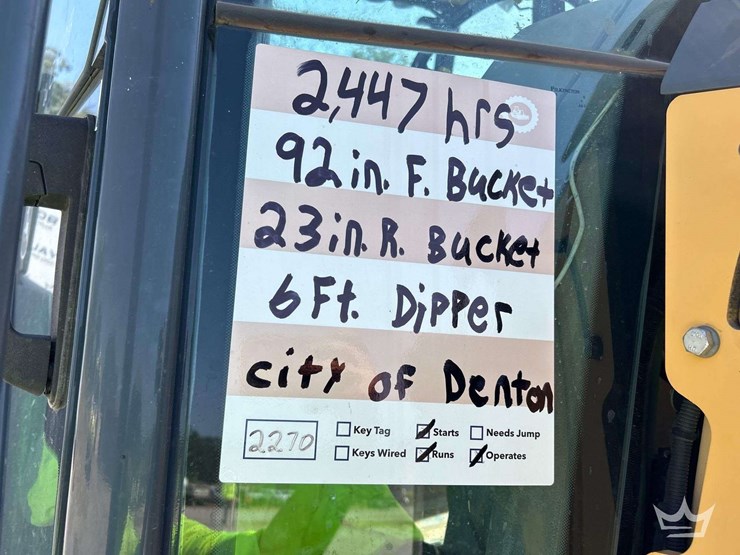 2,447 hrs
92 in. F. Bucket
23 in. R. Bucket
6 Ft. Dipper
city of Denton
2270
Key Tag
Starts
Needs Jump
Keys Wired
Runs
Operates